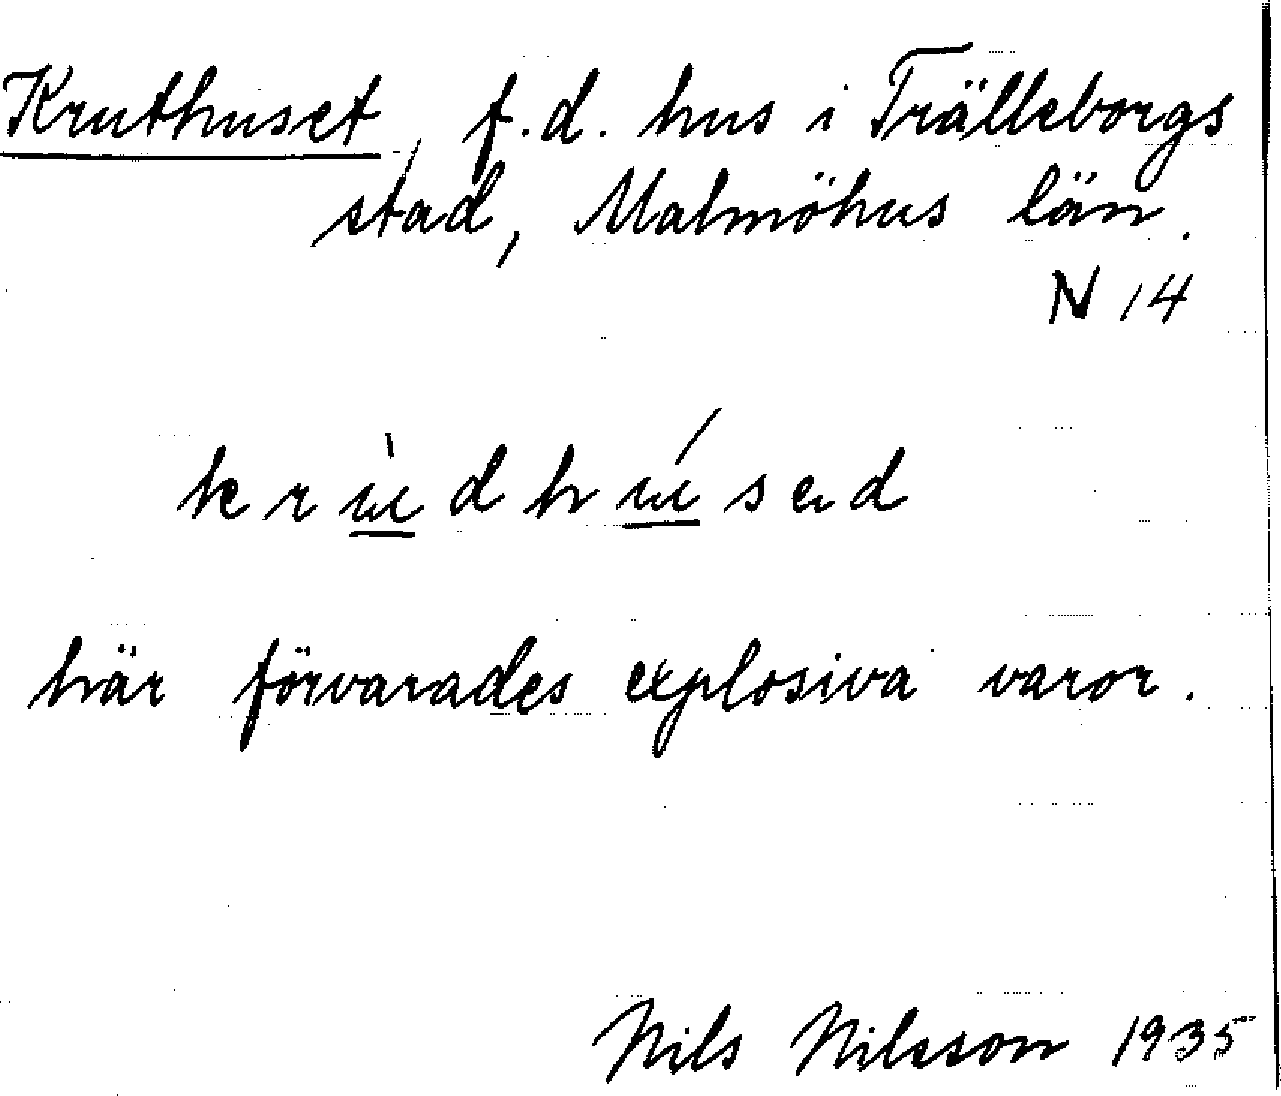 Kruthuset, f.d. hus i Trälleborgs
stad, Malmöhus län.
N 14
krùdhúsed
här förvarades explosiva varor.
Nils Nilsson 1935